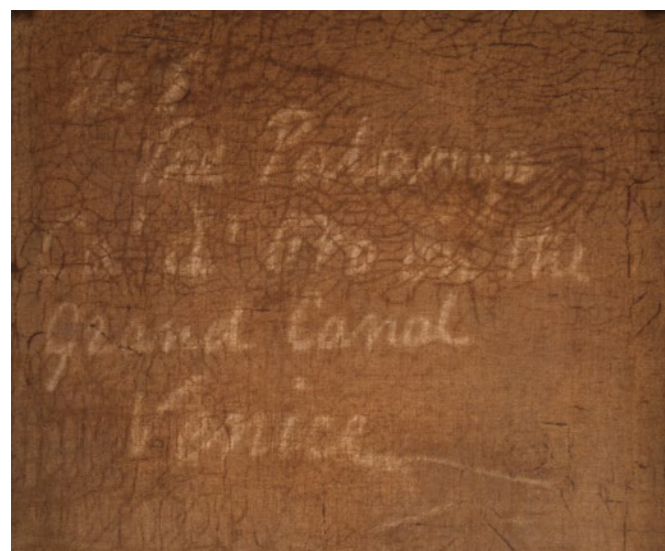 No 5
The Palazzo
Ca' d' Oro on the
Grand Canal
Venice